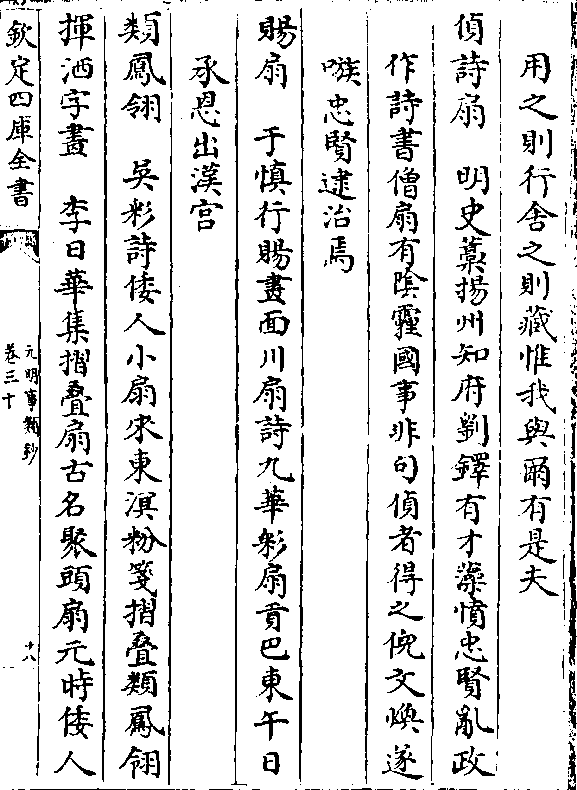 用之則行舍之則藏惟我與爾有是夫
偵詩扇　明史藁揚州知府劉鐸有才藻憤忠賢亂政
作詩書僧扇有陰霾國事非句偵者得之俛文煥遂
嗾忠賢逮治焉
賜扇　于慎行賜畫面川扇詩九華彩扇貢巴東午日
承恩出漢宮
類鳳翎　吳彩詩倭人小扇來東溟粉箋摺疊類鳳翎
揮洒字畫　李日華集摺疊扇古名聚頭扇元時倭人
欽定四庫全書
元明事類鈔
卷三十
十八